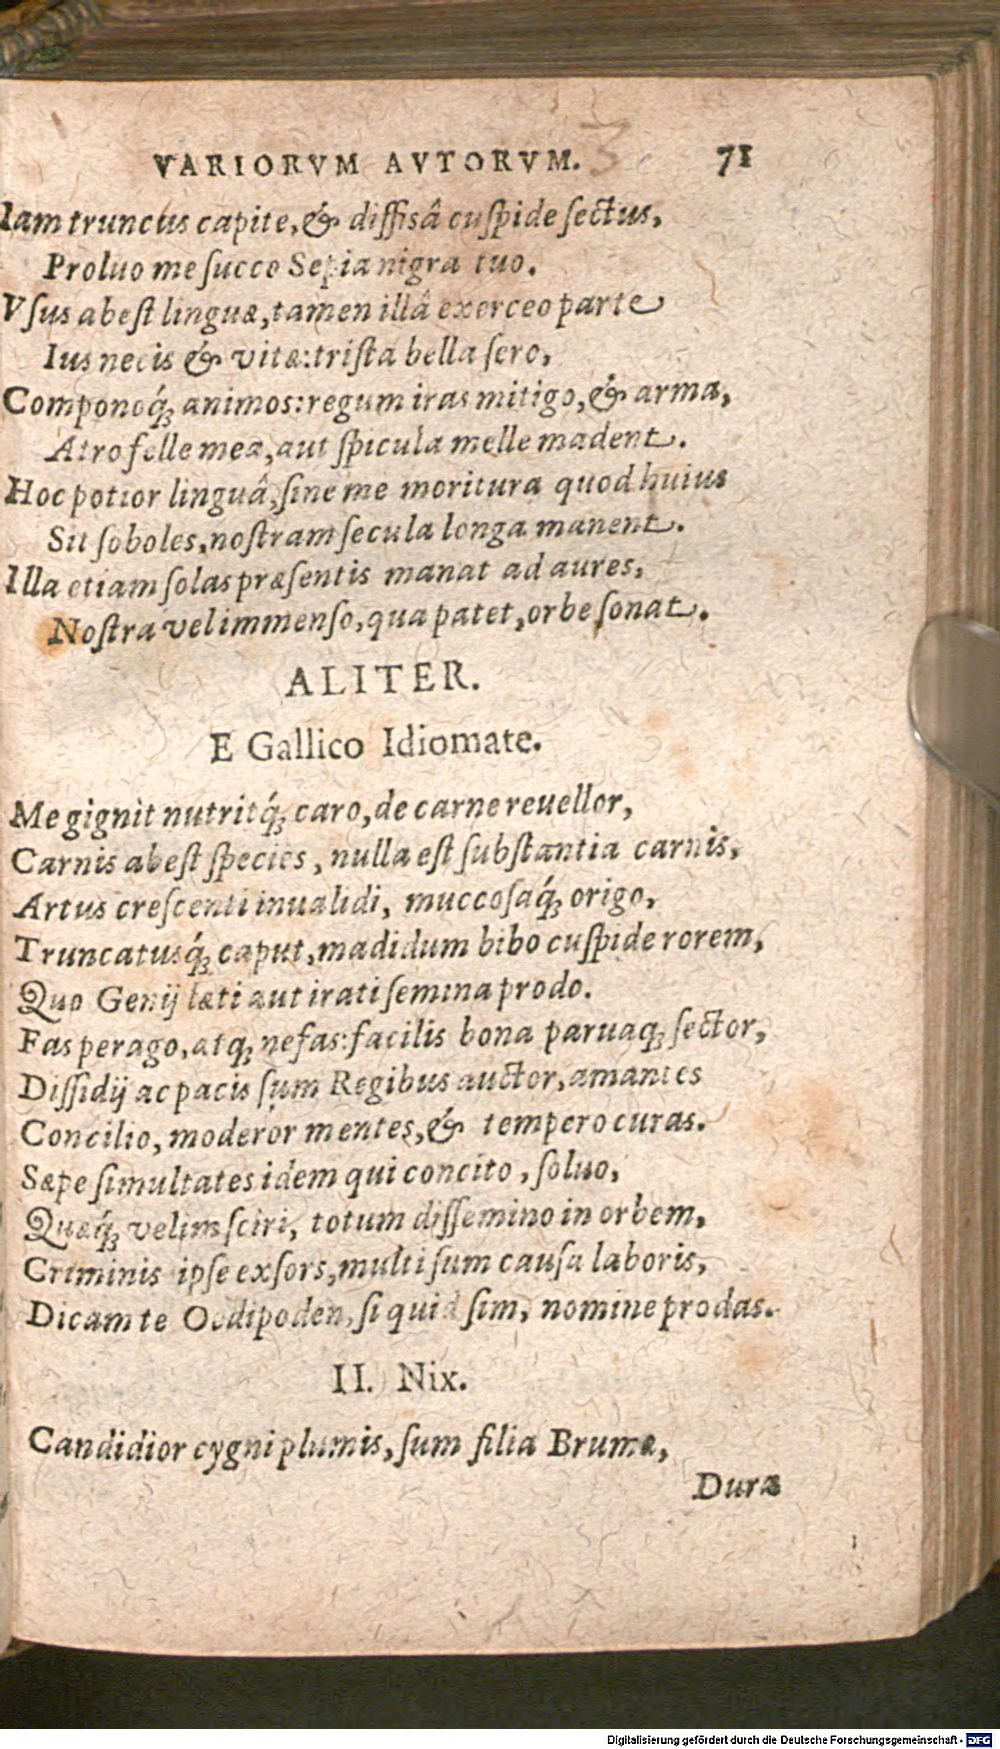 VARIORVM AVTORVM. 71
Iam truncus capite, & diffisâ cuſpide ſectus,
Proluo me ſucco Sepia nigra tuo.
Vſus abeſt linguæ, tamen illâ exerceo parte
Ius necis & vitæ: triſtia bella ſero,
Componoq́; animos: regum iras mitigo, & arma,
Atro felle mea, aut ſpicula melle madent.
Hoc potior linguâ, ſine me moritura quod huius
Sit ſoboles, noſtram ſecula longa manent.
Illa etiam ſolas præſentis manat ad aures,
Noſtra vel immenſo, qua patet, orbe ſonat.
ALITER.
E Gallico Idiomate.
Me gignit nutritq́; caro, de carne reuellor,
Carnis abeſt ſpecies, nulla eſt ſubſtantia carnis,
Artus creſcenti inualidi, muccoſaq́; origo,
Truncatusq́; caput, madidum bibo cuſpide rorem,
Quo Genij læti aut irati ſemina prodo.
Fas perago, atq; nefas: facilis bona paruaq; ſector,
Diſſidij ac pacis ſum Regibus auctor, amantes
Concilio, moderor mentes, & tempero curas.
Sæpe ſimultates idem qui concito, ſoluo,
Quæq́; velim ſciri, totum diſſemino in orbem,
Criminis ipſe exſors, multi ſum cauſa laboris,
Dicam te Oedipoden, ſi quid ſim, nomine prodas.
II. Nix.
Candidior cygni plumis, ſum filia Brumæ,
Duræ
Digitalisierung gefördert durch die Deutsche Forschungsgemeinschaft - DFG